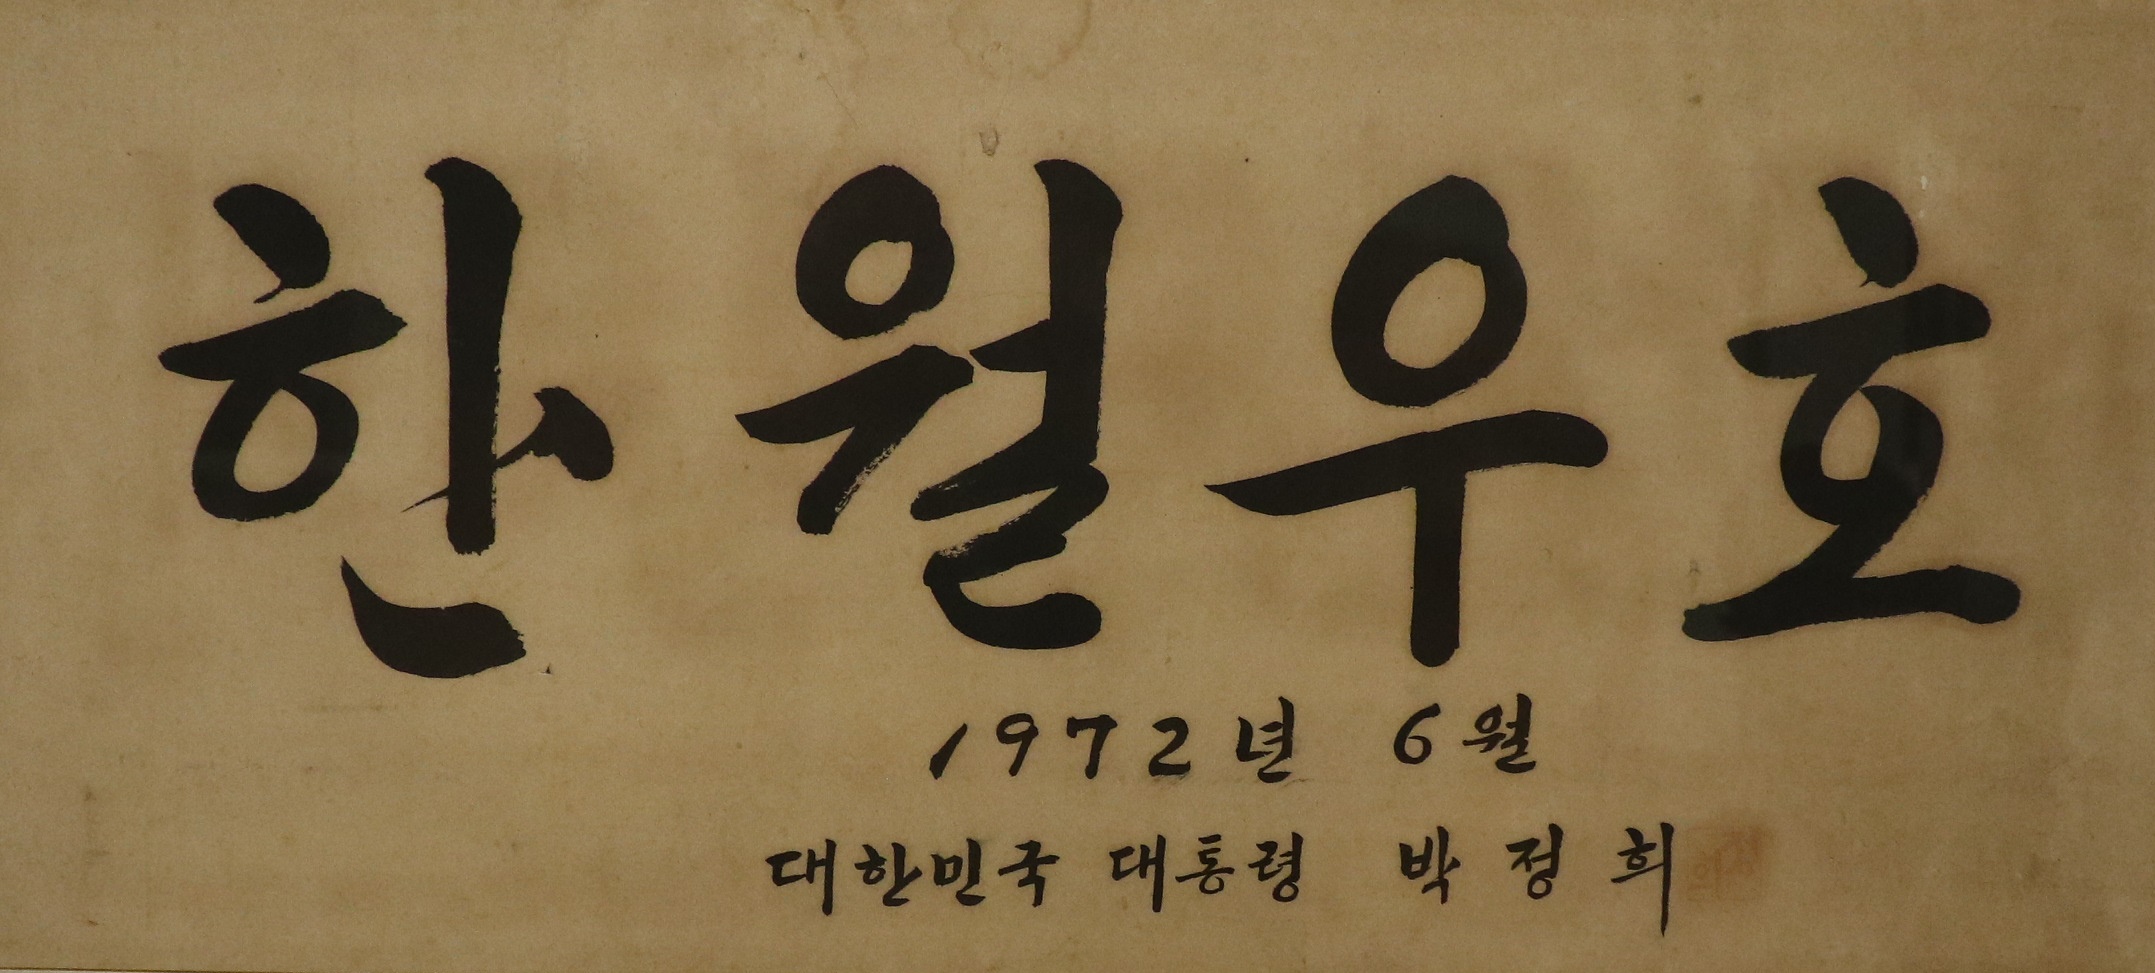 한월우호
1972년 6월
대한민국 대통령 박정희